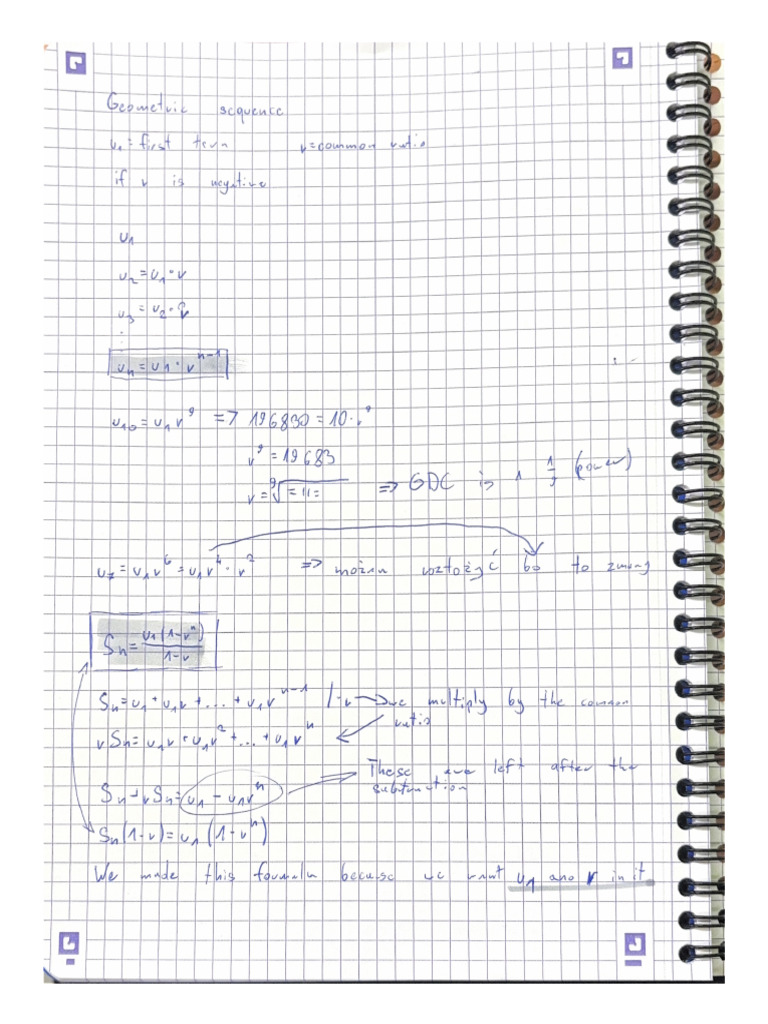 Geometric sequence
u₁ = first term r = common ratio
if r is negative
u₁
u₂ = u₁ · r
u₃ = u₂ · r
uₙ = u₁ · rⁿ⁻¹
u₁₀ = u₁r⁹ => 196830 = 10 · r⁹
r⁹ = 19683
r = ⁹√=11= => GDC is ^ 1/9 (power)
u₇ = u₁r⁶ = u₁r⁴ · r² => można rozłożyć bo to
Sₙ = u₁(1-rⁿ)/1-r
Sₙ = u₁ + u₁r + ... + u₁rⁿ⁻¹ /·r we multiply by the common
ratio
rSₙ = u₁r + u₁r² + ... + u₁rⁿ
These are left after the
subtraction
Sₙ - rSₙ = u₁ - u₁rⁿ
Sₙ(1-r) = u₁(1-rⁿ)
We made this formula because we want u₁ and r in it